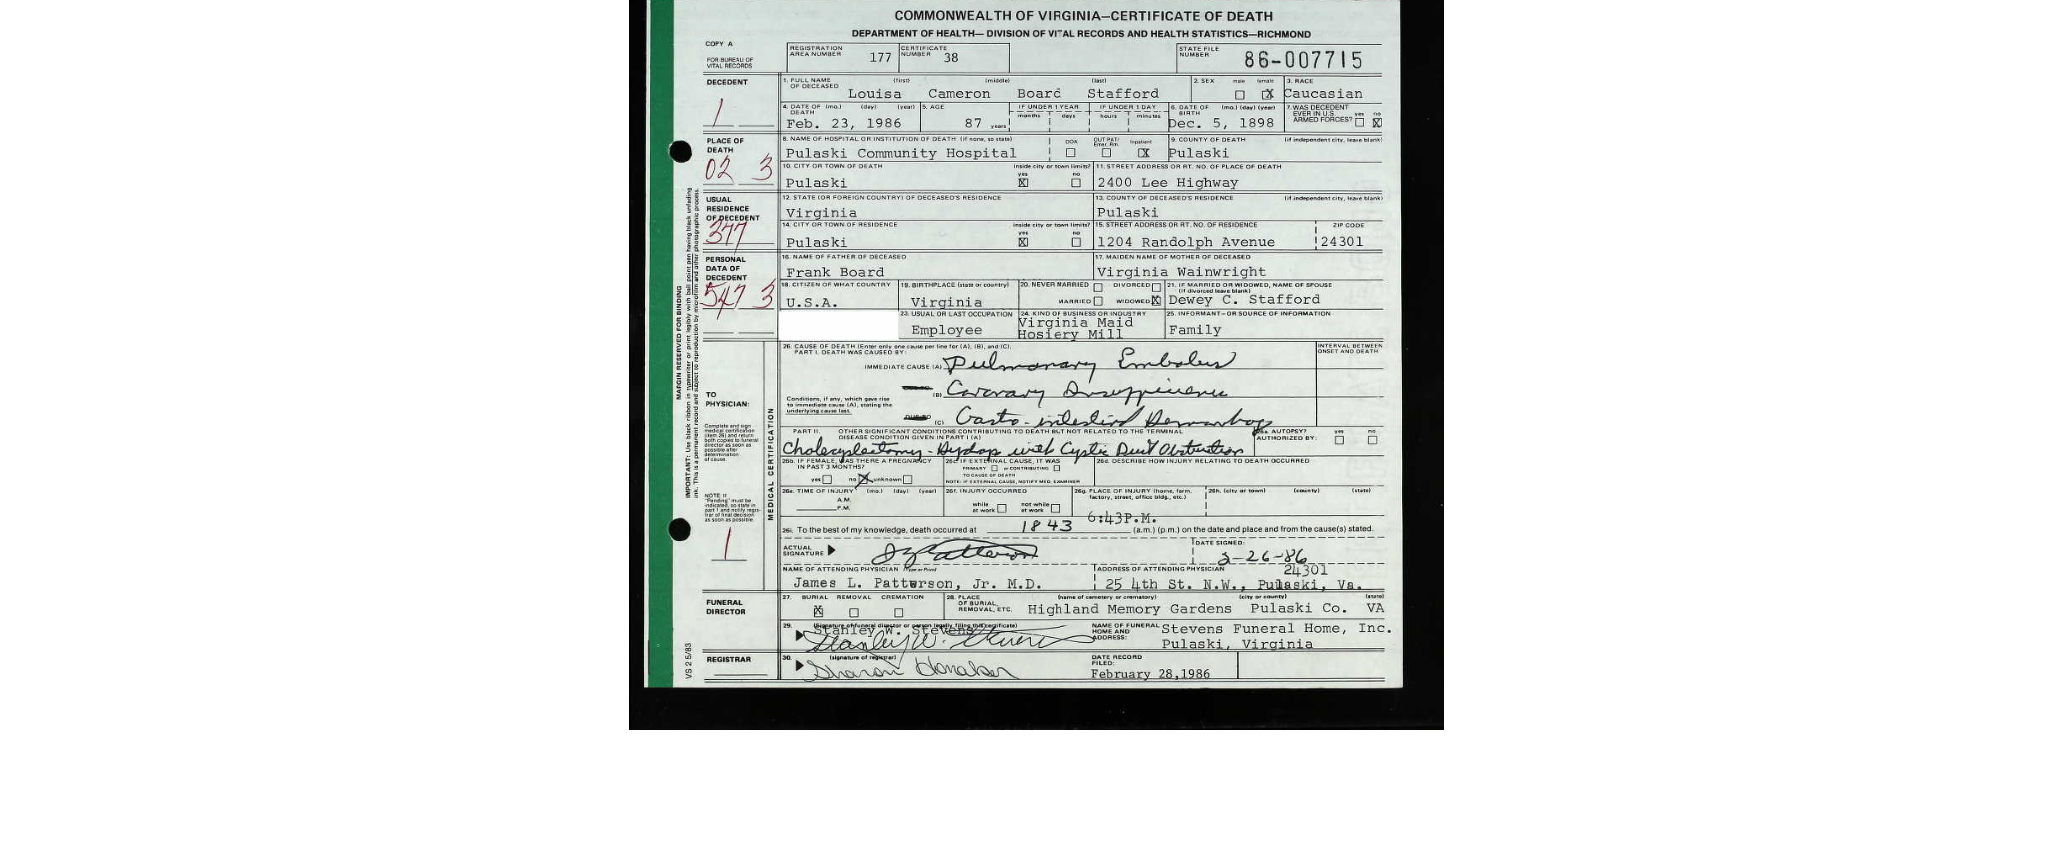 COMMONWEALTH OF VIRGINIA—CERTIFICATE OF DEATH
DEPARTMENT OF HEALTH— DIVISION OF VITAL RECORDS AND HEALTH STATISTICS—RICHMOND
COPY A
FOR BUREAU OF VITAL RECORDS
REGISTRATION AREA NUMBER 177
CERTIFICATE NUMBER 38
STATE FILE NUMBER 86-007715
DECEDENT
1
1. FULL NAME OF DECEASED (first) (middle) (last)
Louisa Cameron Board Stafford
2. SEX male female X
3. RACE
Caucasian
4. DATE OF DEATH (mo.) (day) (year)
Feb. 23, 1986
5. AGE
87 years
IF UNDER 1 YEAR
months days
IF UNDER 1 DAY
hours minutes
6. DATE OF BIRTH (mo.) (day) (year)
Dec. 5, 1898
7. WAS DECEDENT EVER IN U.S. ARMED FORCES? yes no X
PLACE OF DEATH
02 3
8. NAME OF HOSPITAL OR INSTITUTION OF DEATH (if none, so state)
Pulaski Community Hospital
DOA OUT PAT/ Emer. Rm. Inpatient X
9. COUNTY OF DEATH (if independent city, leave blank)
Pulaski
10. CITY OR TOWN OF DEATH inside city or town limits? yes X no
Pulaski
11. STREET ADDRESS OR RT. NO. OF PLACE OF DEATH
2400 Lee Highway
USUAL RESIDENCE OF DECEDENT
377
12. STATE (OR FOREIGN COUNTRY) OF DECEASED'S RESIDENCE
Virginia
13. COUNTY OF DECEASED'S RESIDENCE (if independent city, leave blank)
Pulaski
14. CITY OR TOWN OF RESIDENCE inside city or town limits? yes X no
Pulaski
15. STREET ADDRESS OR RT. NO. OF RESIDENCE ZIP CODE
1204 Randolph Avenue 24301
PERSONAL DATA OF DECEDENT
547 3
16. NAME OF FATHER OF DECEASED
Frank Board
17. MAIDEN NAME OF MOTHER OF DECEASED
Virginia Wainwright
18. CITIZEN OF WHAT COUNTRY
U.S.A.
19. BIRTHPLACE (state or country)
Virginia
20. NEVER MARRIED DIVORCED
MARRIED WIDOWED X
21. IF MARRIED OR WIDOWED, NAME OF SPOUSE (if divorced leave blank)
Dewey C. Stafford
23. USUAL OR LAST OCCUPATION
Employee
24. KIND OF BUSINESS OR INDUSTRY
Virginia Maid
Hosiery Mill
25. INFORMANT—OR SOURCE OF INFORMATION
Family
MARGIN RESERVED FOR BINDING
MEDICAL CERTIFICATION
TO PHYSICIAN:
Complete and sign medical certification (item 26) and return both copies to funeral director as soon as possible after determination of cause.
NOTE: If "Pending" must be indicated, so state in part 1 and notify registrar of final decision as soon as possible.
1
26. CAUSE OF DEATH (Enter only one cause per line for (A), (B), and (C).
PART I. DEATH WAS CAUSED BY:
INTERVAL BETWEEN ONSET AND DEATH
IMMEDIATE CAUSE (A) Pulmonary Embolus
(B) Coronary Insufficience
Conditions, if any, which gave rise to immediate cause (A), stating the underlying cause last.
(C) Gastro-intestinal Hemorrhage
PART II. OTHER SIGNIFICANT CONDITIONS CONTRIBUTING TO DEATH BUT NOT RELATED TO THE TERMINAL DISEASE CONDITION GIVEN IN PART I (A)
Cholecystectomy - Hydrop with Cystic Duct Obstruction
26a. AUTOPSY? yes no
AUTHORIZED BY:
26b. IF FEMALE, WAS THERE A PREGNANCY IN PAST 3 MONTHS?
yes no X unknown
26c. IF EXTERNAL CAUSE, IT WAS
PRIMARY or CONTRIBUTING
TO CAUSE OF DEATH
NOTE: IF EXTERNAL CAUSE, NOTIFY MED. EXAMINER
26d. DESCRIBE HOW INJURY RELATING TO DEATH OCCURRED
26e. TIME OF INJURY (mo.) (day) (year)
A.M.
P.M.
26f. INJURY OCCURRED
while at work not while at work
26g. PLACE OF INJURY (home, farm, factory, street, office bldg., etc.)
26h. (city or town) (county) (state)
6:43P.M.
26i. To the best of my knowledge, death occurred at 1843 (a.m.) (p.m.) on the date and place and from the cause(s) stated.
ACTUAL SIGNATURE
DATE SIGNED:
2-26-86
NAME OF ATTENDING PHYSICIAN (Type or Print)
James L. Patterson, Jr. M.D.
ADDRESS OF ATTENDING PHYSICIAN 24301
25 4th St. N.W., Pulaski, Va.
FUNERAL DIRECTOR
27. BURIAL REMOVAL CREMATION
X
28. PLACE OF BURIAL, REMOVAL, ETC. (name of cemetery or crematory) (city or county) (state)
Highland Memory Gardens Pulaski Co. VA
29. (signature of funeral director or person legally filing this certificate)
Stanley W. Stevens
Stanley W. Stevens
NAME OF FUNERAL HOME AND ADDRESS:
Stevens Funeral Home, Inc.
Pulaski, Virginia
REGISTRAR
30. (signature of registrar)
Sharon Honaker
DATE RECORD FILED:
February 28,1986
VS 2 5/83